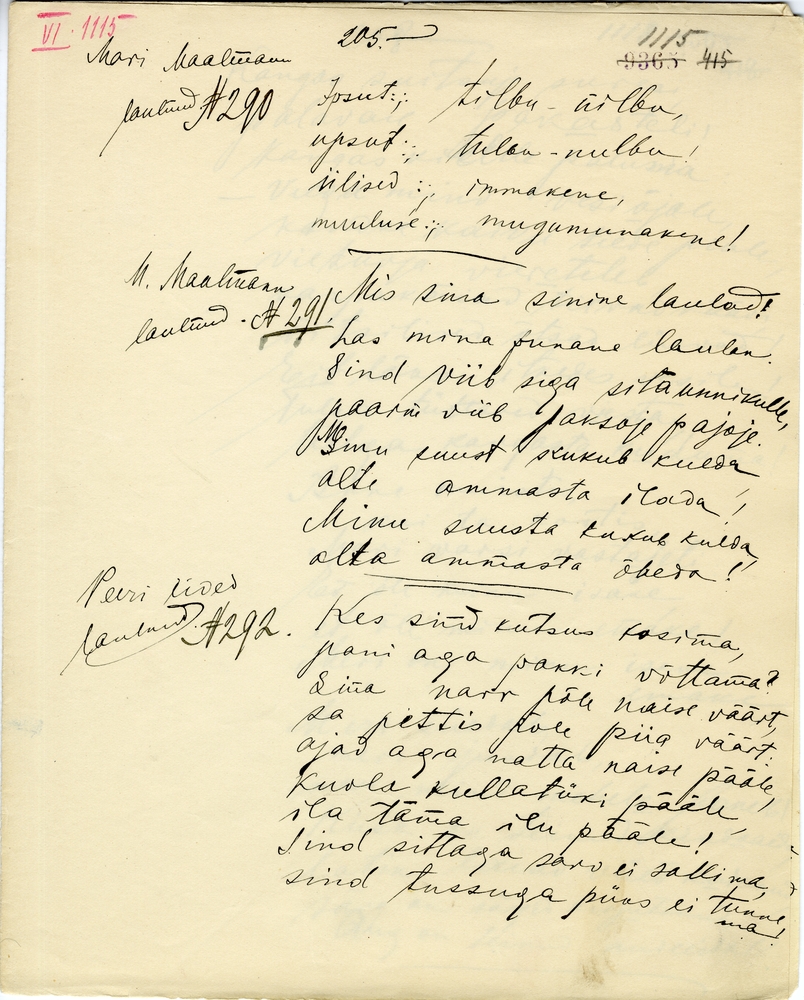 VI 1115
205.
1115
9365 415
Mari Maalmann
laulnud № 290
Ipsut :,: tilbu-üilbu,
upsut :,: tulbu-nulbu!
üilised :,: immakene,
muuluse :,: mugumunakene!
M. Maalmann
laulnud - № 291.
Mis sina sinine laulad!
Las mina punane laulan.
Sind viib siga sitaunnikulle,
paarm viib paksoje pajoje.
Sinu suust kukub kulda
alte ammasta ilada!
Minu suusta kukub kulda,
alta ammasta õbeda!
Peeri
laulnud № 292.
Kes sind kutsus kosima,
pani aga pakki võttama?
Sina narr põle naise väärt,
sa pettis põle piia väärt:
ajad aga natta naise pääle,
kuola kullatüki pääle,
ila täma ilu pääle!
Sind sittaga saro ei sallima,
sind tussuga püvs ei tunne,
ma!